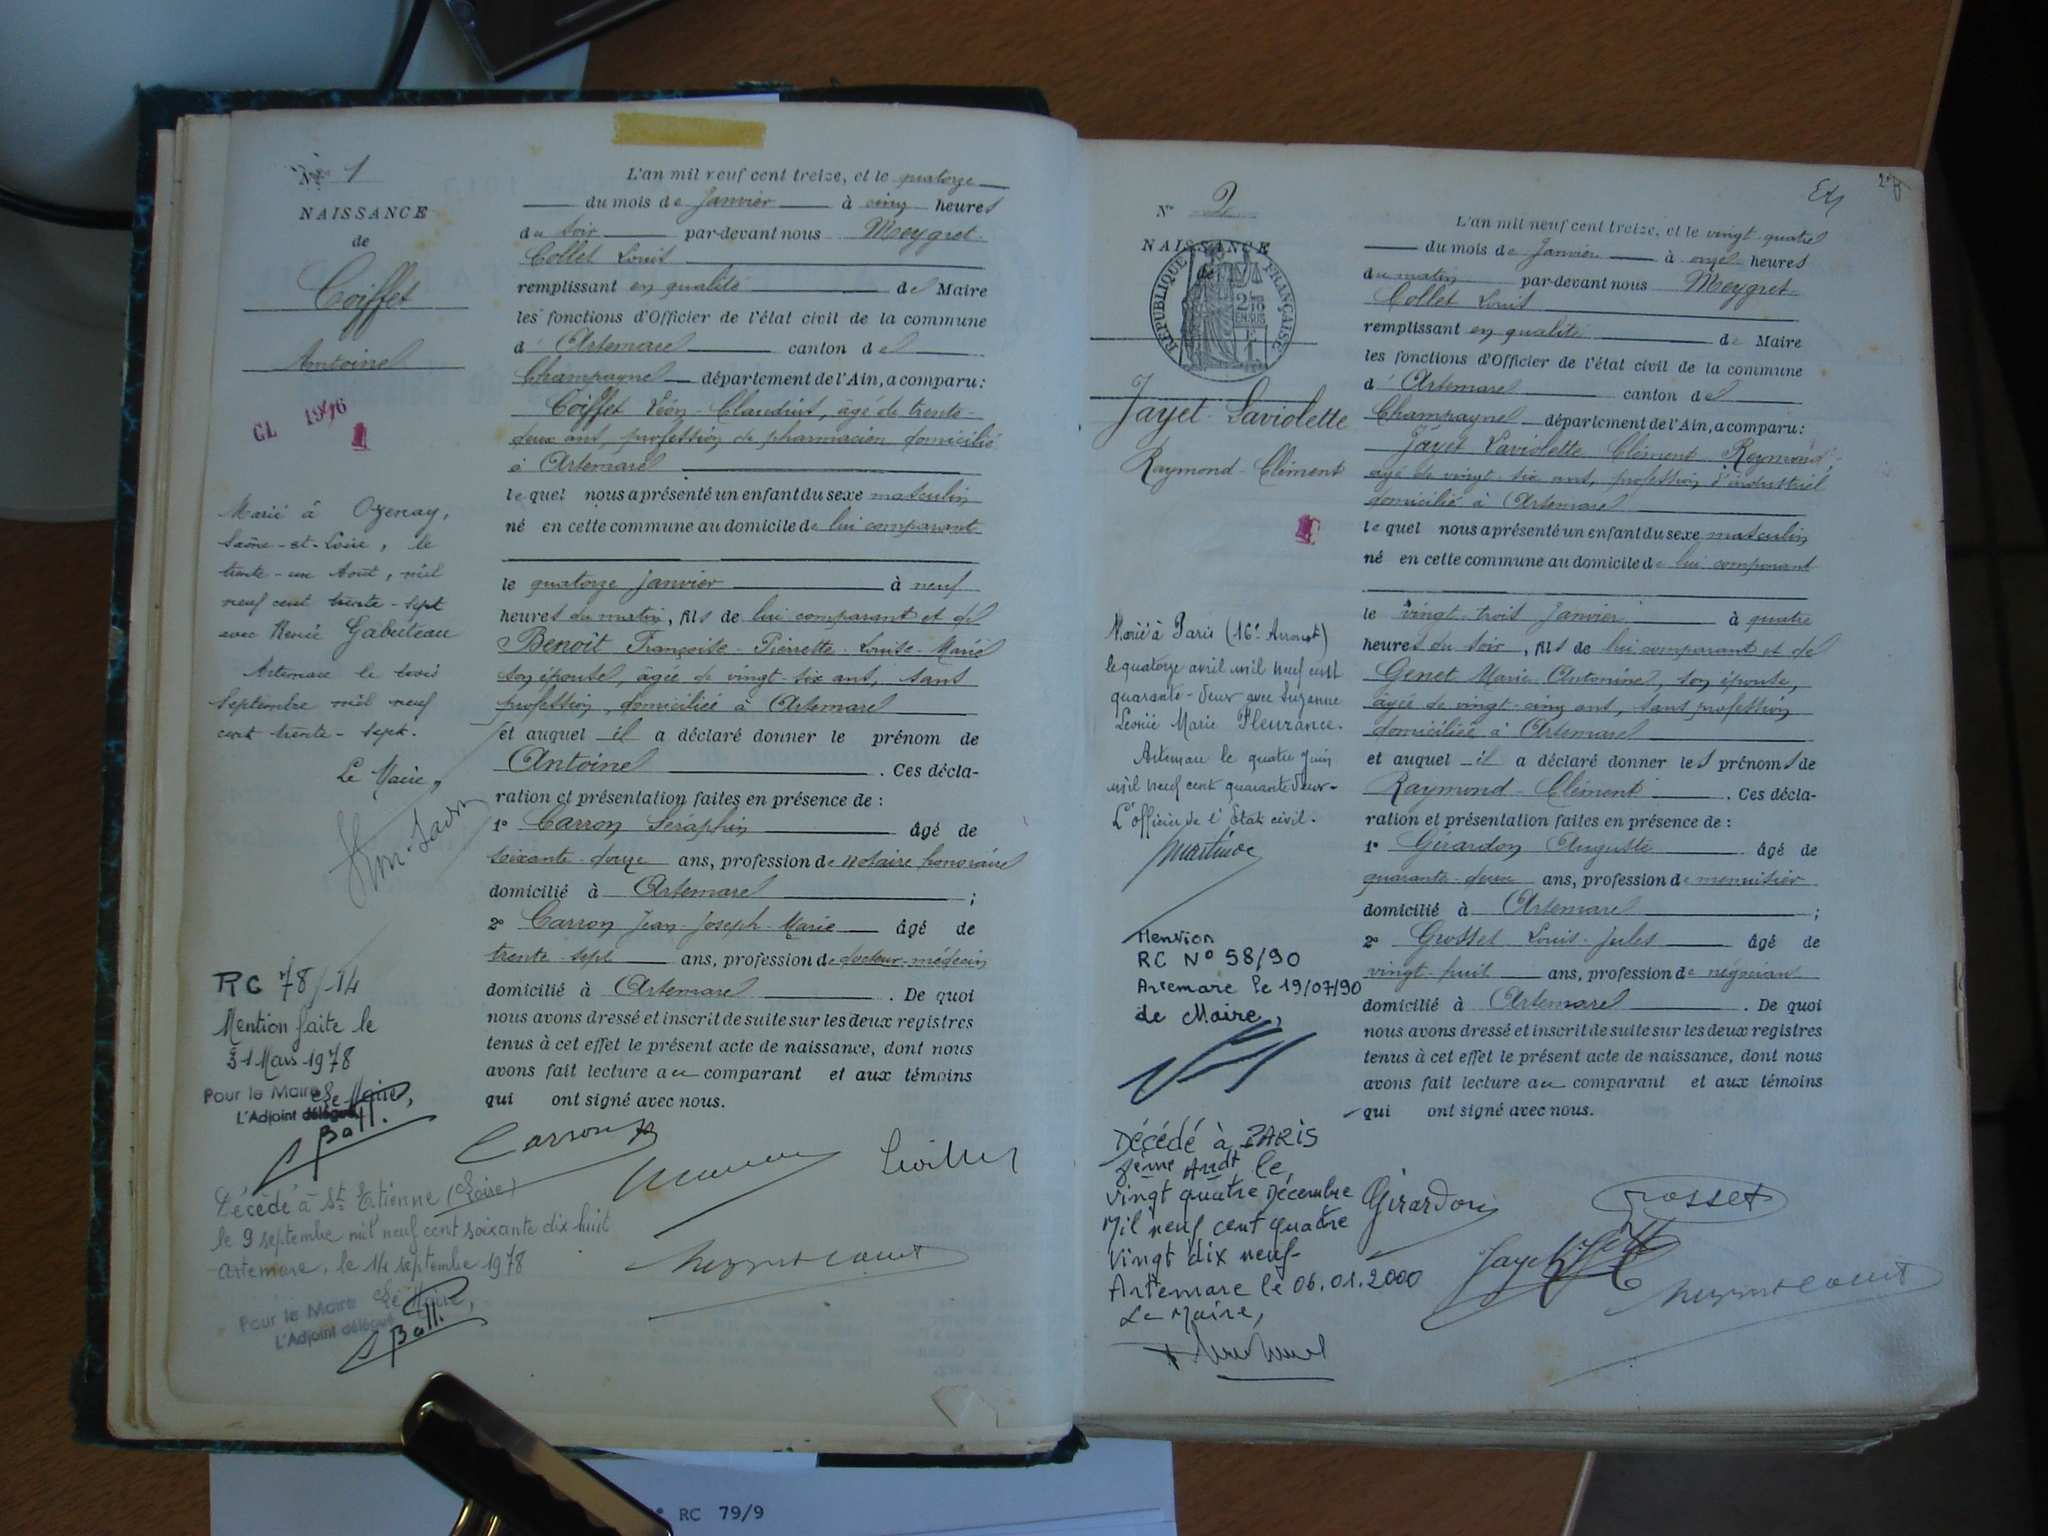 N° 1
NAISSANCE
de
Coiffet
Antoine
GL 1946
1
Marié à Ozenay,
Saône-et-Loire, le
trente-un Août, mil
neuf cent trente-sept
avec Renée Gabuteau
Artemare le trois
Septembre mil neuf
cent trente-sept.
Le Maire,
RC 78/14
Mention faite le
31 Mars 1978
Pour le Maire Le Maire,
L'Adjoint délégué
Décédé à St Etienne (Loire)
le 9 septembre mil neuf cent soixante dix huit
Artemare, le 14 septembre 1978
Pour le Maire Le Maire,
L'Adjoint délégué
L'an mil neuf cent treize, et le quatorze
du mois de Janvier à cinq heures
du soir par-devant nous Meygret-
Collet Louis
remplissant en qualité de Maire
les fonctions d'Officier de l'état civil de la commune
d' Artemare canton de
Champagne département de l'Ain, a comparu:
Coiffet Léon-Claudius, âgé de trente-
deux ans, profession de pharmacien domicilié
à Artemare
lequel nous a présenté un enfant du sexe masculin
né en cette commune au domicile de lui comparant
le quatorze janvier à neuf
heures du matin, fils de lui comparant et de
Benoît Françoise-Pierrette-Louise-Marie
son épouse, âgée de vingt-six ans, sans
profession, domiciliée à Artemare
et auquel il a déclaré donner le prénom de
Antoine . Ces décla-
ration et présentation faites en présence de :
1° Carron Séraphin âgé de
soixante-douze ans, profession de notaire honoraire
domicilié à Artemare ;
2° Carron Jean-Joseph-Marie âgé de
trente-sept ans, profession de docteur-médecin
domicilié à Artemare . De quoi
nous avons dressé et inscrit de suite sur les deux registres
tenus à cet effet le présent acte de naissance, dont nous
avons fait lecture au comparant et aux témoins
qui ont signé avec nous.
Carron
N° 2
NAISSANCE
de
RÉPUBLIQUE FRANÇAISE
Jayet-Laviolette
Raymond-Clément
1
Marié à Paris (16e Arront)
le quatorze avril mil neuf cent
quarante-deux avec Suzanne
Léonie Marie Fleurance.
Artemare le quatre Juin
mil neuf cent quarante deux-
L'officier de l'Etat civil.
Mention
RC N° 58/90
Artemare le 19/07/90
le Maire,
Décédé à PARIS
8ème Arrdt le
vingt quatre Décembre
mil neuf cent quatre
vingt dix neuf-
Artemare le 06.01.2000
Le Maire,
L'an mil neuf cent treize, et le vingt-quatre
du mois de Janvier à onze heures
du matin par-devant nous Meygret-
Collet Louis
remplissant en qualité de Maire
les fonctions d'Officier de l'état civil de la commune
d' Artemare canton de
Champagne département de l'Ain, a comparu:
Jayet Laviolette Clément Raymond,
âgé de vingt-six ans, profession d'industriel
domicilié à Artemare
lequel nous a présenté un enfant du sexe masculin
né en cette commune au domicile de lui comparant
le vingt-trois Janvier à quatre
heures du soir, fils de lui comparant et de
Genet Marie Antonine, son épouse,
âgée de vingt-cinq ans, sans profession
domiciliée à Artemare
et auquel il a déclaré donner les prénoms de
Raymond-Clément . Ces décla-
ration et présentation faites en présence de :
1° Girardon Auguste âgé de
quarante-deux ans, profession de menuisier
domicilié à Artemare ;
2° Grosset Louis-Jules âgé de
vingt-huit ans, profession de négociant
domicilié à Artemare . De quoi
nous avons dressé et inscrit de suite sur les deux registres
tenus à cet effet le présent acte de naissance, dont nous
avons fait lecture au comparant et aux témoins
qui ont signé avec nous.
Girardon
Grosset
RC 79/9